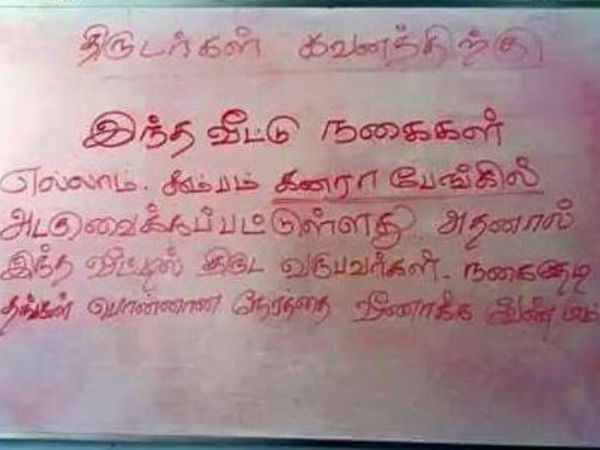 திருடர்கள் கவனத்திற்கு
இந்த வீட்டு நகைகள்
எல்லாம். கம்பம் கனரா பேங்கில்
அடகுவைக்கப்பட்டுள்ளது. அதனால்
இந்த வீட்டில் திருட வருபவர்கள். நகைதேடி
தங்கள் பொன்னான நேரத்தை வீணாக்க வேண்டாம்